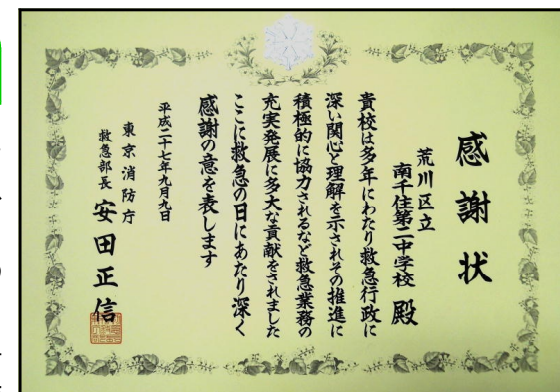 感謝状
荒川区立
南千住第二中学校 殿
貴校は多年にわたり救急行政に
深い関心と理解を示されその推進に
積極的に協力されるなど救急業務の
充実発展に多大な貢献をされました
ここに救急の日にあたり深く
感謝の意を表します
平成二十七年九月九日
東京消防庁
救急部長 安田正信